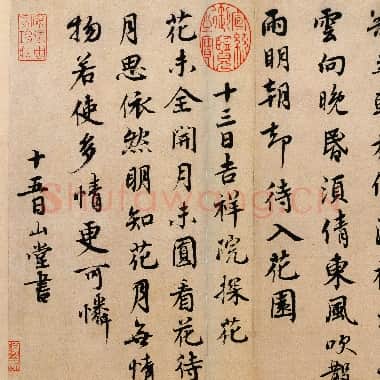 雲向晚昏須倩東風吹散
雨明朝却待入花園
十三日吉祥院探花
花未全開月未圓看花待
月思依然明知花月無情
物若使多情更可憐
十五日山堂書
Shufawang.cn